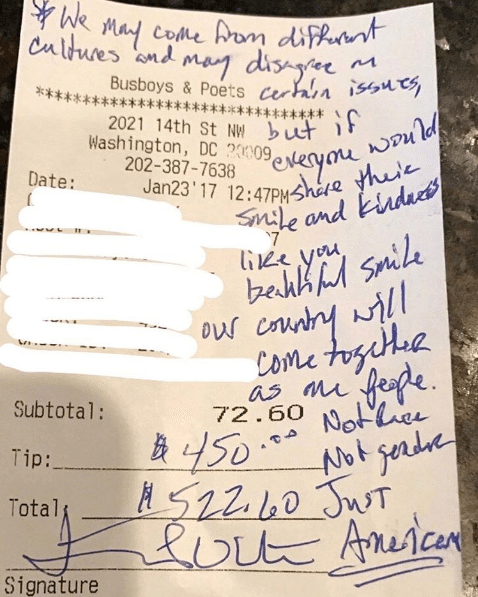 * We may come from different
cultures and may disagree on
certain issues,
Busboys & Poets
********************************
2021 14th St NW
Washington, DC 20009
202-387-7638
Date: Jan23'17 12:47PM
but if
everyone would
share their
smile and kindness
like you
beautiful smile
our country will
come together
as one people.
Not Race
Not gender
Just
American
7
Subtotal: 72.60
Tip: $ 450.00
Total: $ 522.60
Signature